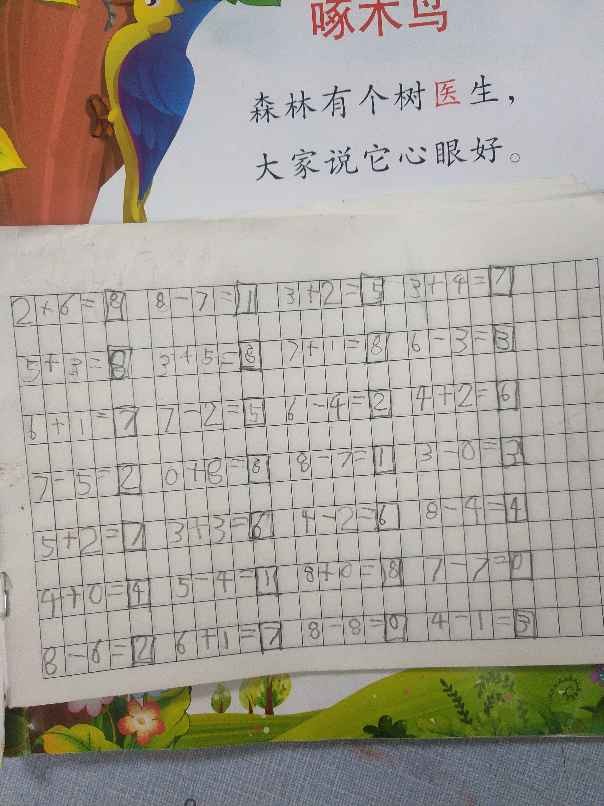 啄木鸟
森林有个树医生，
大家说它心眼好。
2+6=8 8-7=1 3+2=5 3+4=7
5+3=8 3+5=8 7+1=8 6-3=3
6+1=7 7-2=5 6-4=2 4+2=6
7-5=2 0+8=8 8-7=1 3-0=3
5+2=7 3+3=6 4-2=6 8-4=4
4+0=4 5-4=1 8+0=8 7-7=0
8-6=2 6+1=7 8-8=0 4-1=3